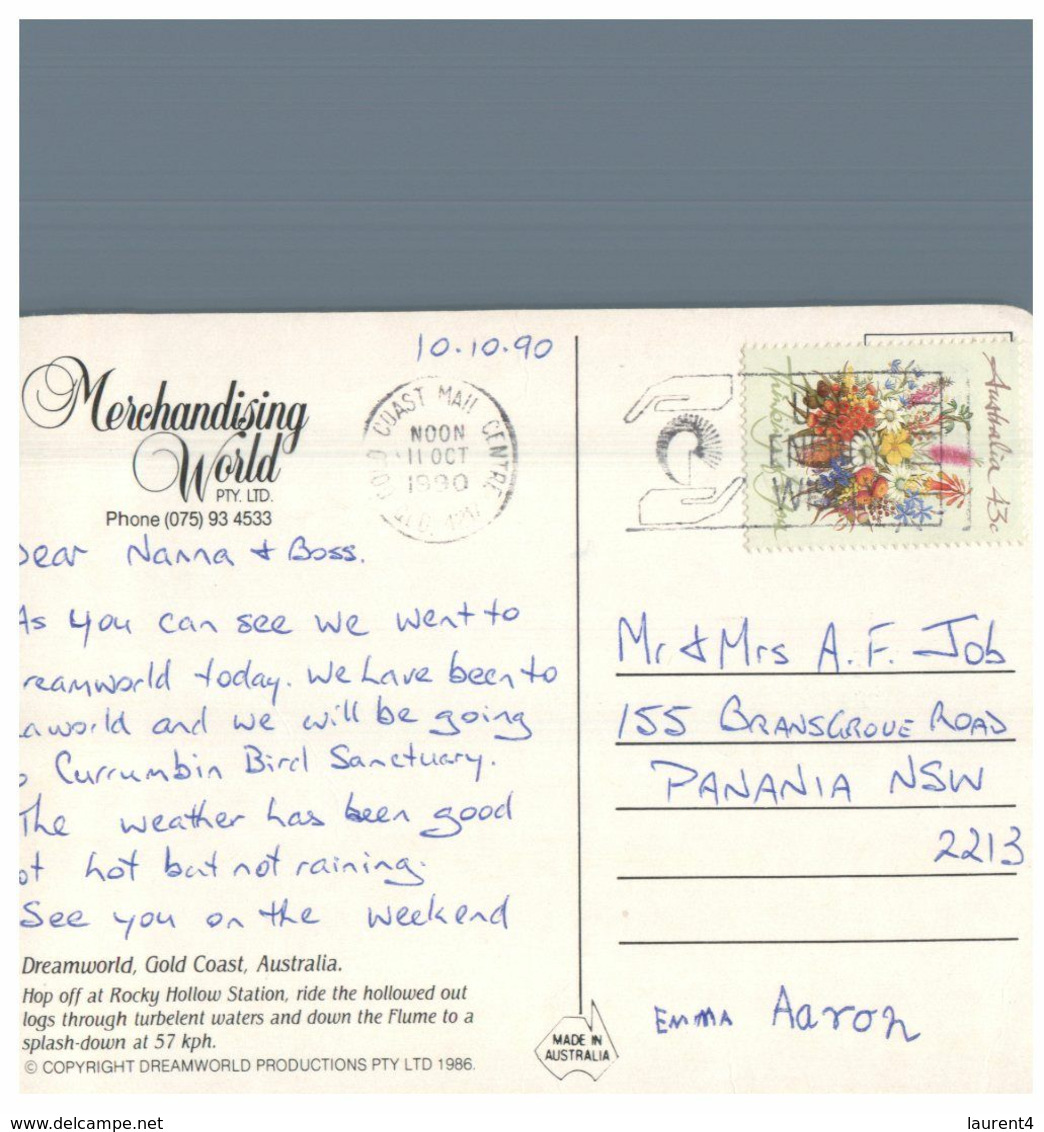 10.10.90
Merchandising
World
PTY. LTD.
Phone (075) 93 4533
COAST MAIL CENTRE
NOON
11 OCT
1990
Australia 43c
Thinking of You
ear Nanna + Boss.
As you can see we went to
reamworld today. We have been to
aworld and we will be going
Currumbin Bird Sanctuary.
The weather has been good
ot hot but not raining.
See you on the weekend
Mr & Mrs A. F. Job
155 BRANSGROVE ROAD
PANANIA NSW
2213
Dreamworld, Gold Coast, Australia.
Hop off at Rocky Hollow Station, ride the hollowed out
logs through turbelent waters and down the Flume to a
splash-down at 57 kph.
© COPYRIGHT DREAMWORLD PRODUCTIONS PTY LTD 1986.
MADE IN
AUSTRALIA
EMMA Aaron
www.delcampe.net
laurent4